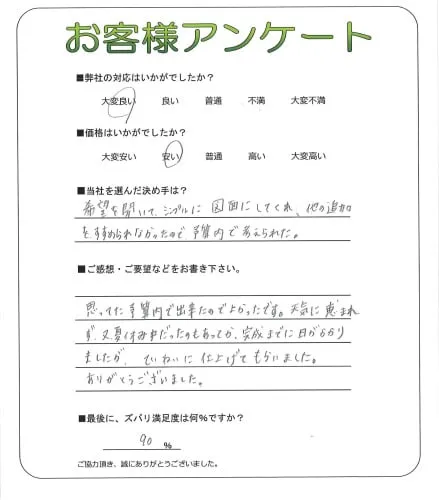 お客様アンケート
■弊社の対応はいかがでしたか?
大変良い 良い 普通 不満 大変不満
■価格はいかがでしたか?
大変安い 安い 普通 高い 大変高い
■当社を選んだ決め手は?
希望を聞いて、シンプルに 図面にしてくれ、他の追加
をすすめられなかったので、予算内で考えられた。
■ご感想・ご要望などをお書き下さい。
思ってた予算内で出来たのでよかったです。天気に恵まれ
ず、又夏休み中だったのもあってか、完成までに日がかかり
ましたが、ていねいに仕上げてもらいました。
ありがとうございました。
■最後に、ズバリ満足度は何%ですか?
90 %
ご協力頂き、誠にありがとうございました。